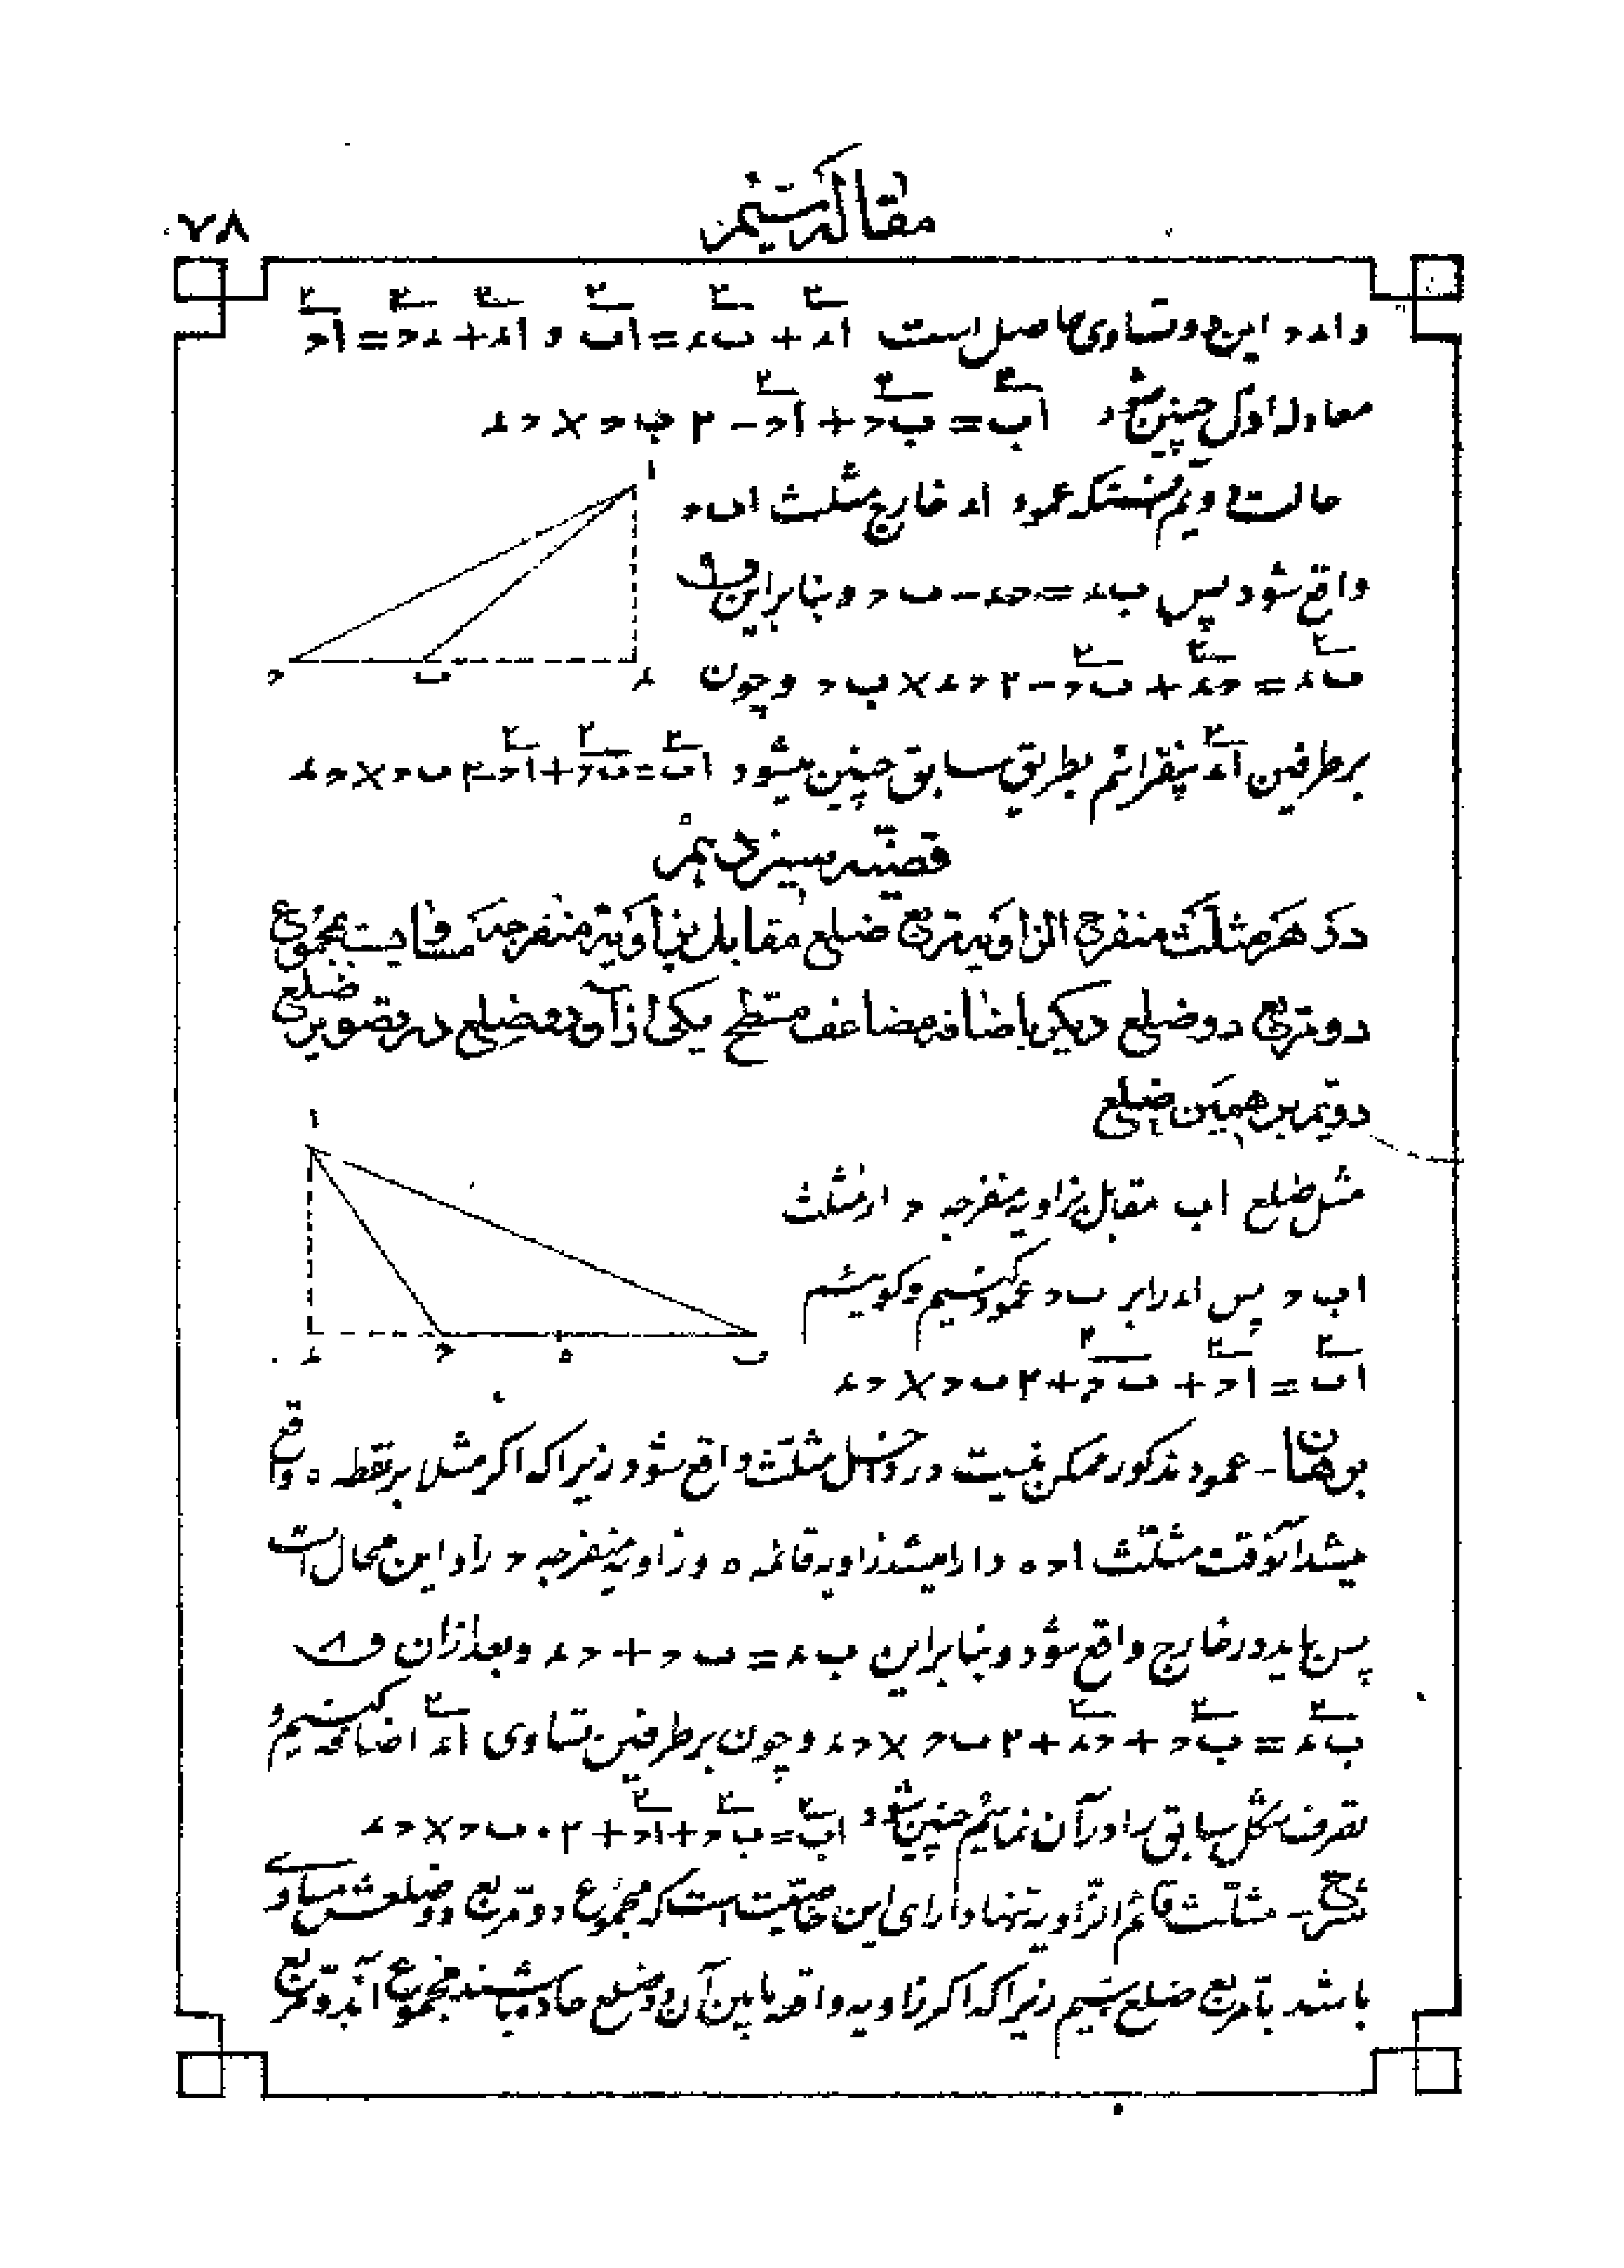 مقاله سیم
۷۸
و اء د این دو تساوی حاصل است اء۲ + ب ء۲ = اب۲ و اء۲ + ء ح۲ = اح۲
معادله اول چنین میشود اب۲ = ب ح۲ + اح۲ − ۲ ب ح × ح ء
حالت دویم آنستکه عمود اء خارج مثلث اب ح
واقع شود پس ب ء = ح ء − ب ح و بنابراین ف ۹
ب ء۲ = ح ء۲ + ب ح۲ − ۲ ح ء × ب ح و چون
بر طرفین اء۲ بیفزائیم بطریق سابق چنین میشود اب۲ = ب ح۲ + اح۲ − ۲ ب ح × ح ء
قضیّه سیزدهم
در هر مثلّث منفرج الزاویه مربع ضلع مقابل بزاویه منفرجه مساویست بمجموع
دو مربع دو ضلع دیگر باضافه مضاعف مسطّح یکی از آن دو ضلع در تصویر ضلع
دویّم بر همین ضلع
مثل ضلع اب مقابل بزاویه منفرجه ح از مثلث
اب ح پس اء را بر ب ح عمود کنیم و گوئیم
اب۲ = اح۲ + ب ح۲ + ۲ ب ح × ح ء
برهان − عمود مذکور ممکن نیست در داخل مثلّث واقع شود زیرا که اگر مثلا بر نقطه ه واقع
میشد آنوقت مثلّث اح ه دارا میشد زاویه قائمه ه و زاویه منفرجه ح را و این محال است
پس باید در خارج واقع شود و بنابراین ب ء = ب ح + ح ء و بعد از آن ف ۸
ب ء۲ = ب ح۲ + ح ء۲ + ۲ ب ح × ح ء و چون بر طرفین تساوی اء۲ اضافه کنیم و
تصرف شکل سابق را در آن نمائیم چنین شود اب۲ = ب ح۲ + اح۲ + ۲ ب ح × ح ء
شرح − مثلّث قائم الزّاویه تنها دارای این خاصیّت است که مجموع دو مربع دو ضلعش مساوی
باشد با مربع ضلع سیّم زیرا که اگر زاویه واقعه مابین آن دو ضلع حاده باشد مجموع آندو مربع
ا
ح ب ء
ا
ء ح ه ب